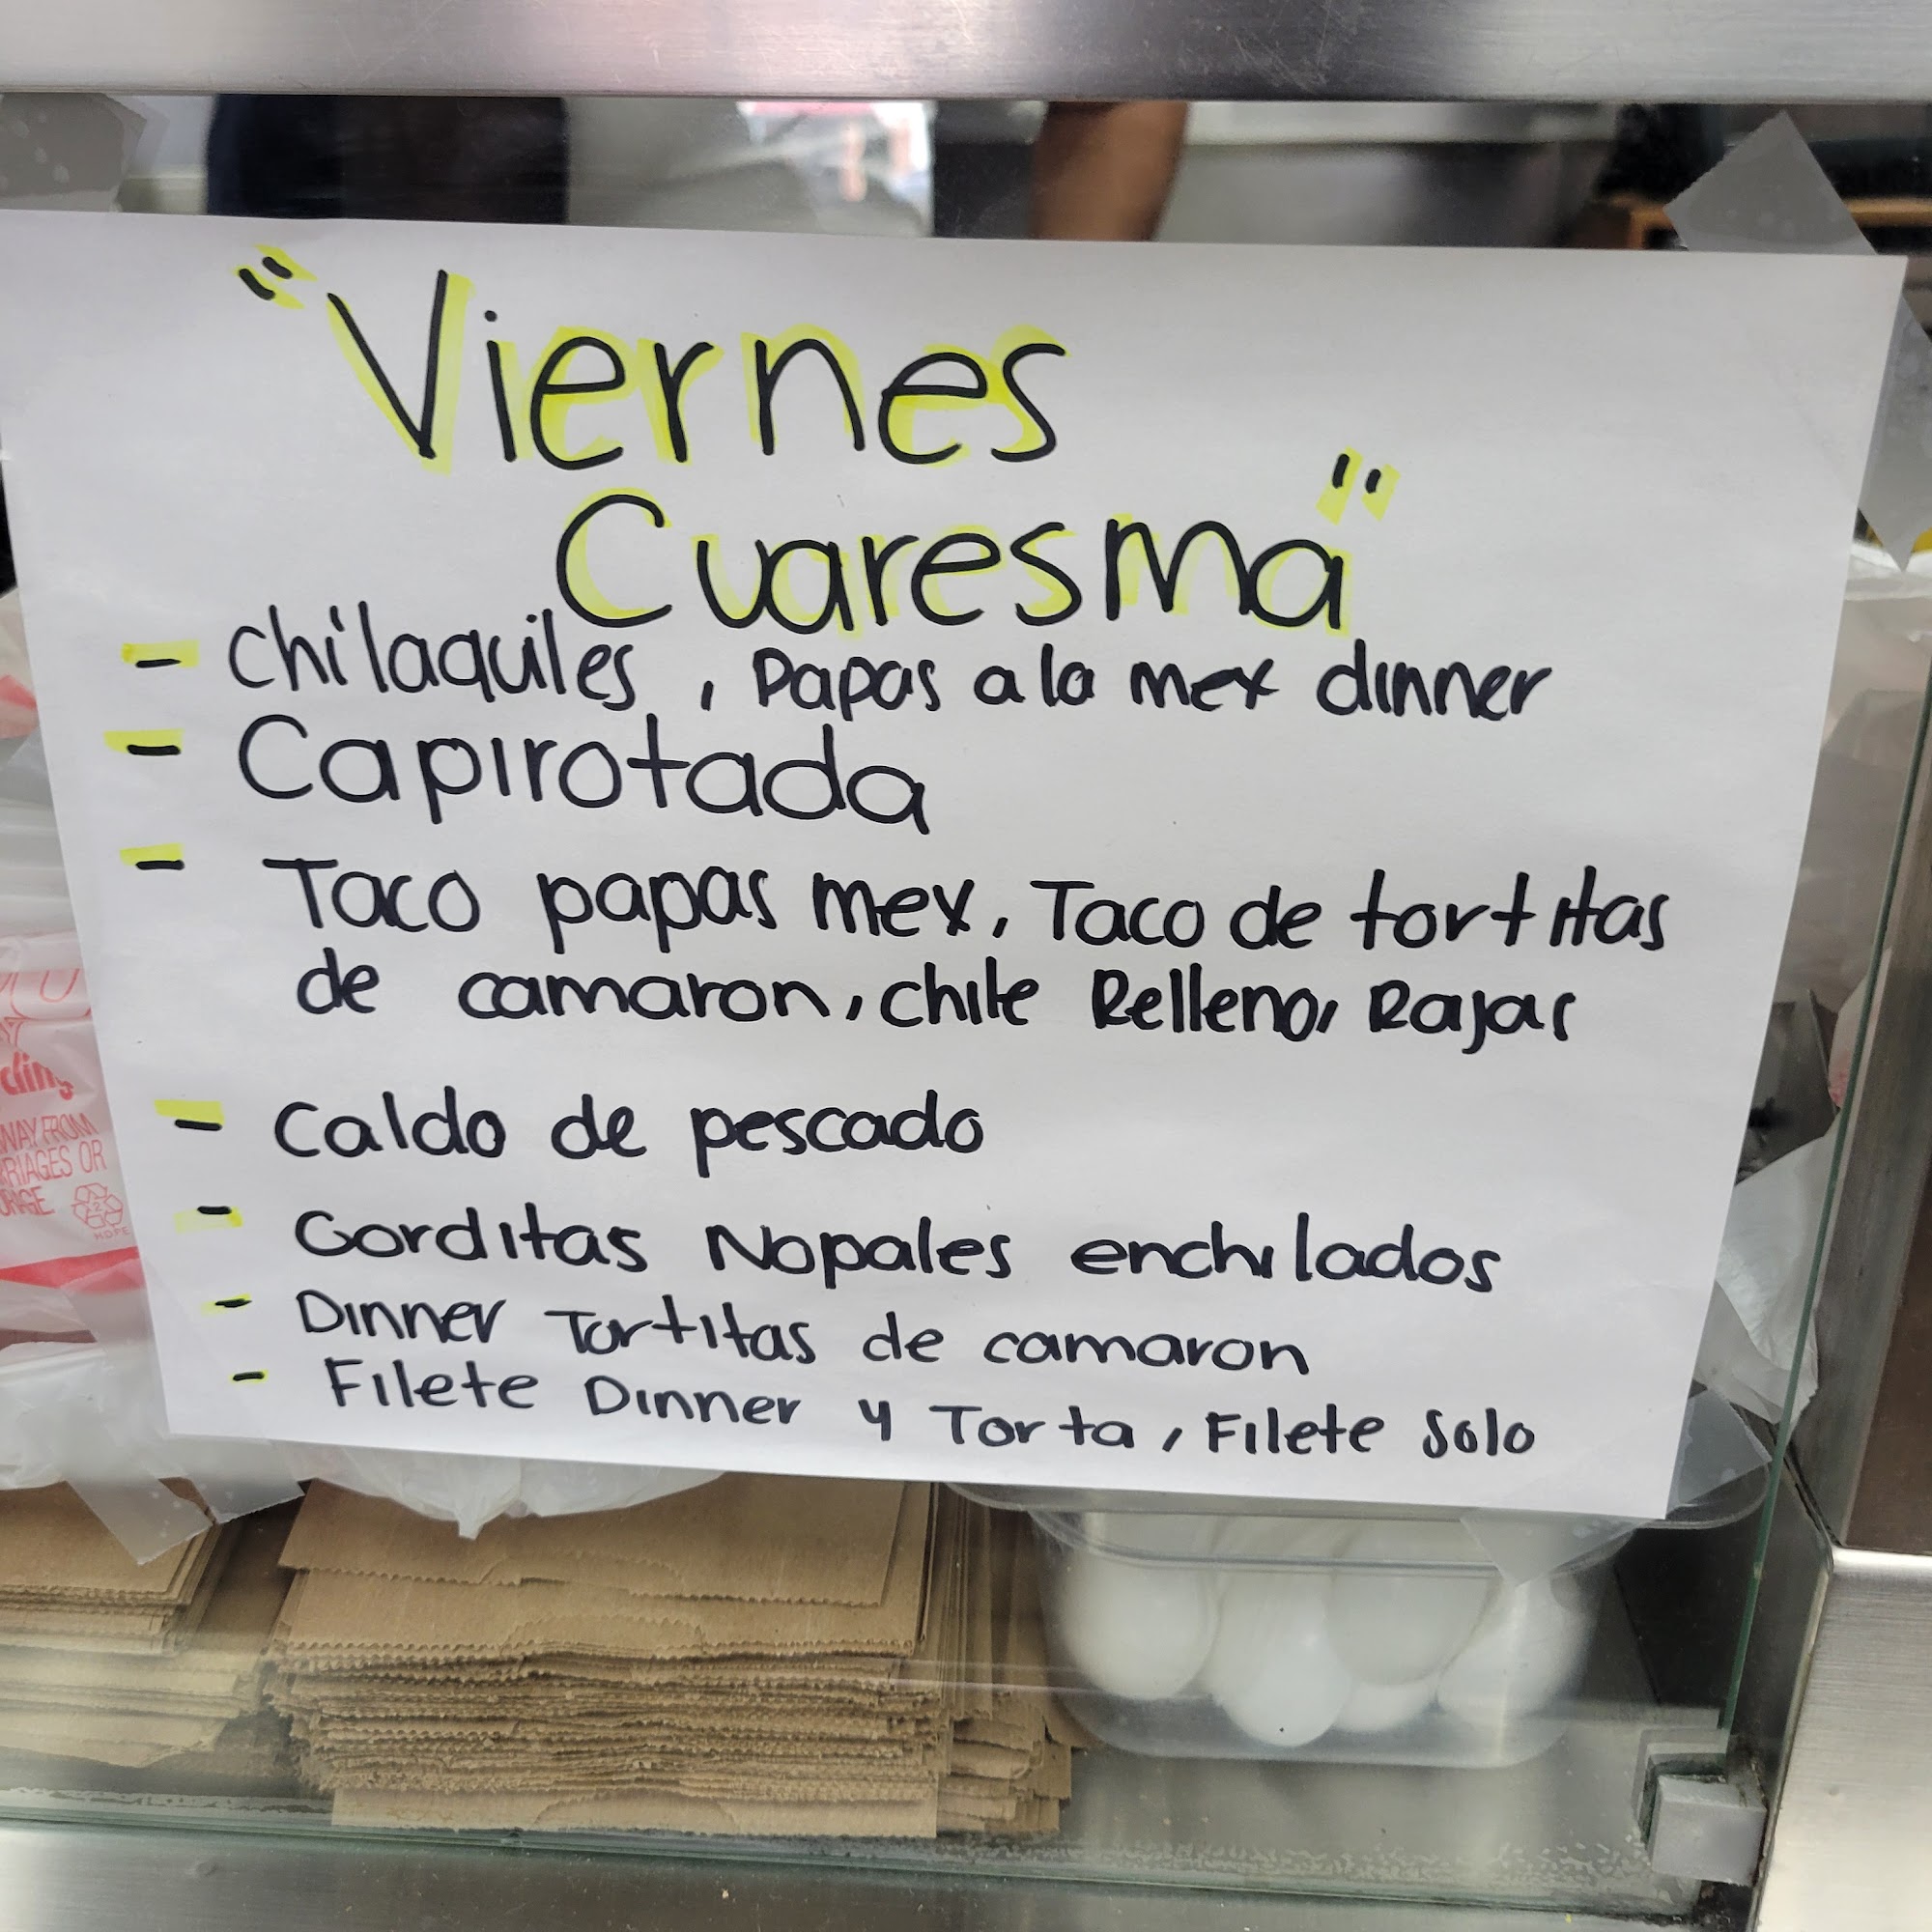 "Viernes
Cuaresma"
- Chilaquiles, Papas a la mex dinner
- Capirotada
- Taco papas mex, Taco de tortitas
de camaron, chile Relleno, Rajas
- Caldo de pescado
- Gorditas Nopales enchilados
- Dinner Tortitas de camaron
- Filete Dinner y Torta, Filete Solo
AWAY FROM
OR
2
HDPE